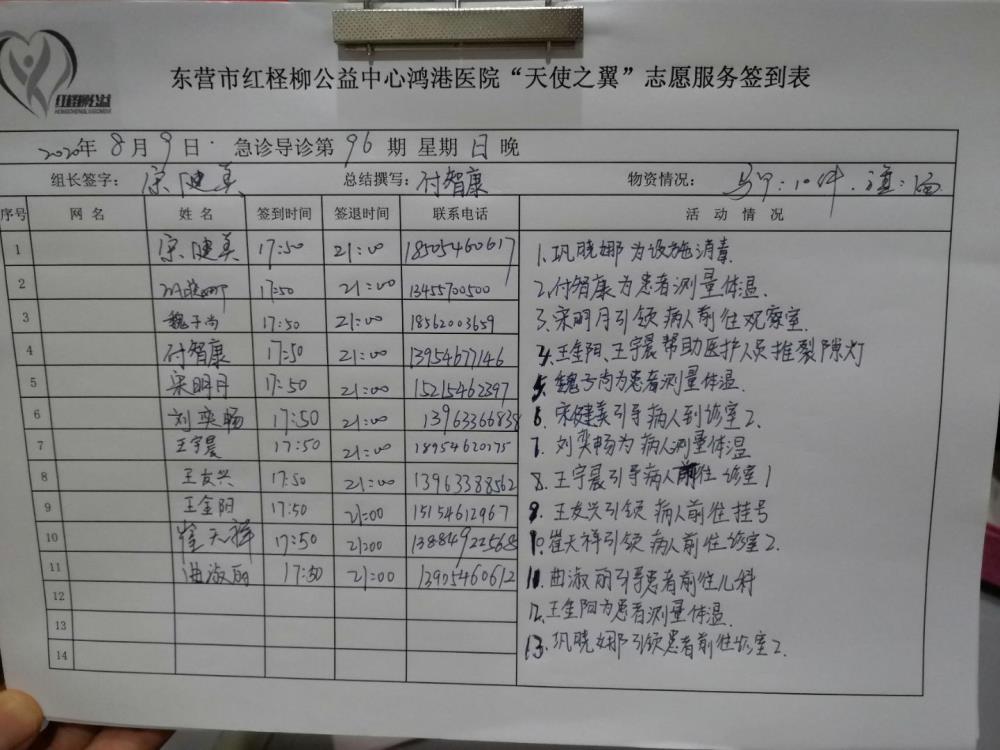 红柽柳公益
东营市红柽柳公益中心鸿港医院“天使之翼”志愿服务签到表
2020年 8月 9日 急诊导诊第 96 期 星期 日 晚
组长签字： 宋健美 总结撰写：付智康 物资情况： 马甲：10件.
序号 网名 姓名 签到时间 签退时间 联系电话 活动情况
1 宋健美 17:50 21:00 18505460617
2 巩晓娜 17:50 21:00 13455700500
3 魏子尚 17:50 21:00 18562003659
4 付智康 17:50 21:00 13954677146
5 宋明月 17:50 21:00 15215462397
6 刘奕畅 17:50 21:00 13963366838
7 王宇晨 17:50 21:00 18954620175
8 王友兴 17:50 21:00 13963338562
9 王金阳 17:50 21:00 15154612967
10 崔天祥 17:50 21:00 13884922568
11 曲淑丽 17:50 21:00 13905460612
12
13
14
1.巩晓娜为设施消毒
2.付智康为患者测量体温.
3.宋明月引领病人前往观察室.
4.王金阳、王宇晨帮助医护人员推裂隙灯
5.魏子尚为患者测量体温.
6.宋健美引导病人到诊室2.
7.刘奕畅为病人测量体温
8.王宇晨引导病人前往诊室1
9.王友兴引领病人前往挂号
10.崔天祥引领病人前往诊室2.
11.曲淑丽引导患者前往儿科
12.王金阳为患者测量体温.
13.巩晓娜引领患者前往诊室2.